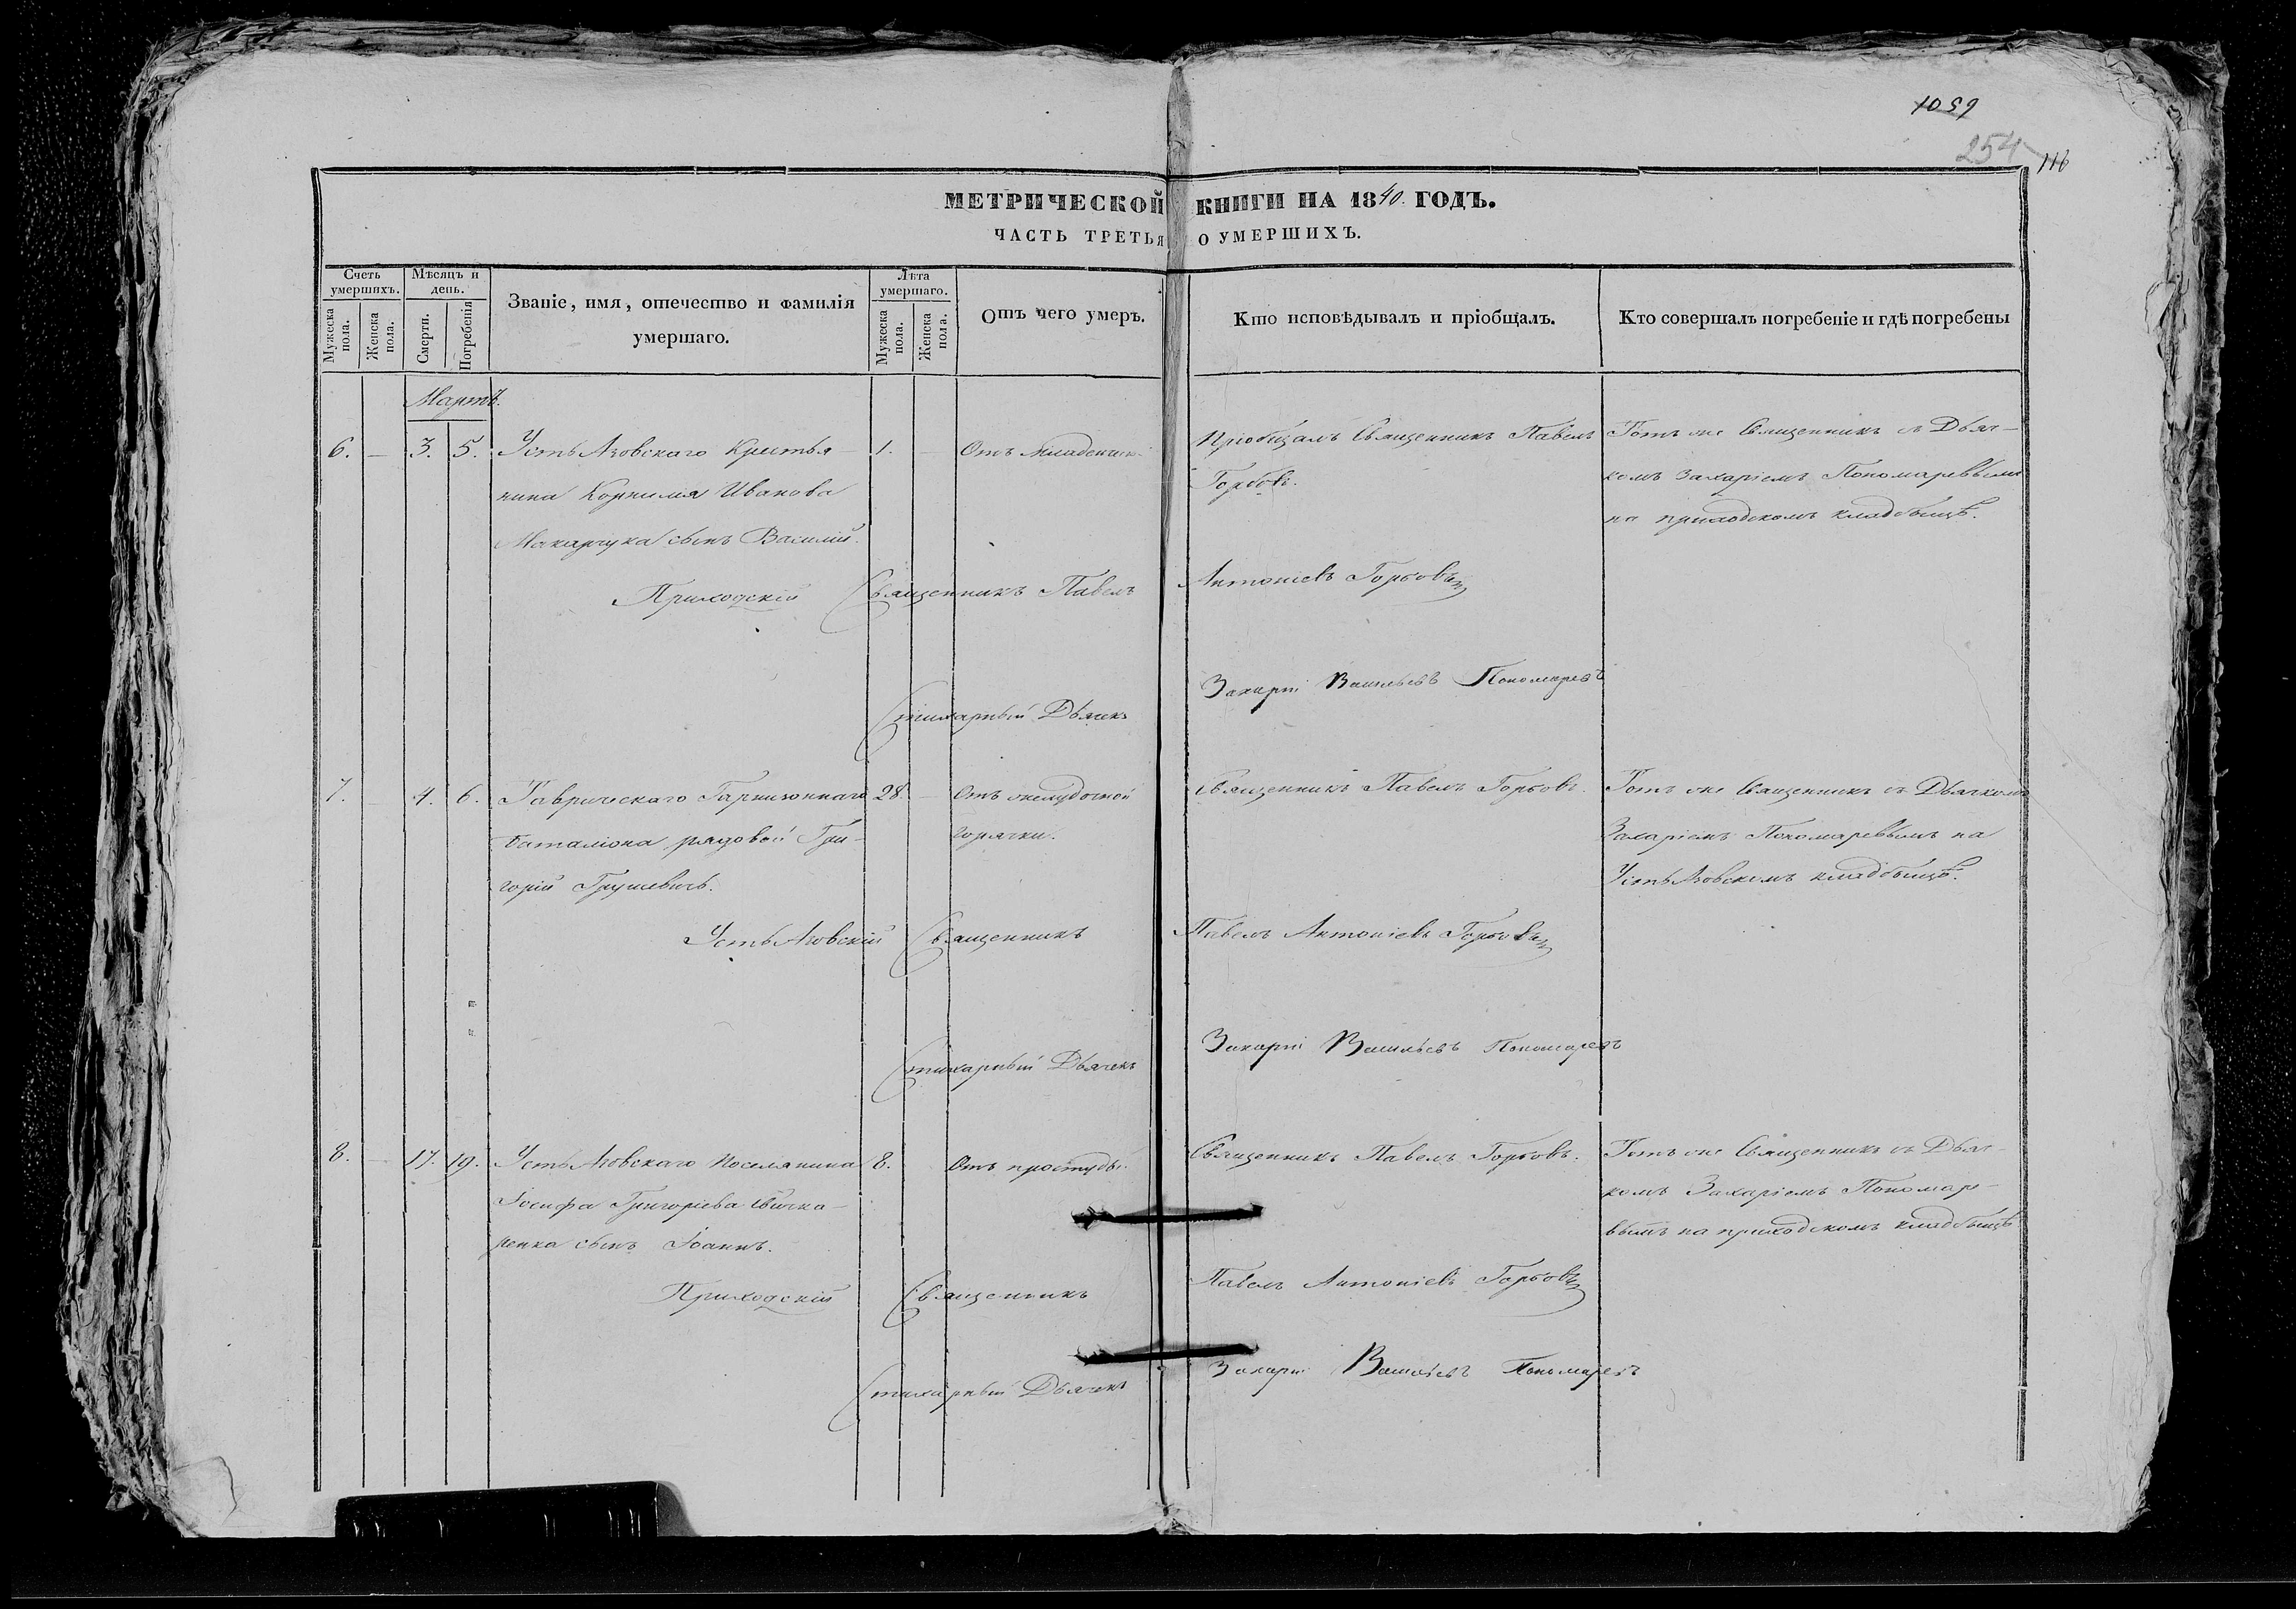 1059
254
116
МЕТРИЧЕСКОЙ КНИГИ НА 1840. ГОДЪ.
ЧАСТЬ ТРЕТЬЯ О УМЕРШИХЪ.
Счетъ умершихъ.
Мужеска пола.
Женска пола.
Мѣсяцъ и день.
Смерти.
Погребенія
Званіе, имя, отечество и фамилія
умершаго.
Лѣта умершаго.
Мужеска пола.
Женска пола.
Отъ чего умеръ.
Кто исповѣдывалъ и пріобщалъ.
Кто совершалъ погребеніе и гдѣ погребены
Мартъ.
6. — 3. 5. Усть Азовскаго Крестья- 1. — Отъ Пріобщалъ Священникъ Павелъ Тотъ же Священникъ съ Дьяч-
нина Корнилія Иванова Горбовъ. комъ Захаріемъ Пономаревымъ
Макарчука сынъ Василій. на приходскомъ кладбищѣ.
Приходскій Священникъ Павелъ Антоніевъ Горбовъ
Стихарный Дьячекъ Захарій Васильевъ Пономаревъ
7. 4. 6. Таврическаго Гарнизоннаго 28. — Отъ желудочной Священникъ Павелъ Горбовъ. Тотъ же Священникъ съ Дьячкомъ
баталіона рядовой Гри- горячки. Захаріемъ Пономаревымъ на
горій Грушевичъ. Усть Азовскомъ кладбищѣ.
Усть Азовскій Священникъ Павелъ Антоніевъ Горбовъ
Стихарный Дьячекъ Захарій Васильевъ Пономаревъ
8. — 17. 19. Усть Азовскаго поселянина 8. Отъ простуды. Священникъ Павелъ Горбовъ. Тотъ же Священникъ съ Дьяч-
Іосифа Григоріева комъ Захаріемъ Пономаре-
ренка сынъ Іоаннъ. вымъ на приходскомъ кладбищѣ
Приходскій Священникъ Павелъ Антоніевъ Горбовъ
Стихарный Дьячекъ Захарій Васильевъ Пономаревъ